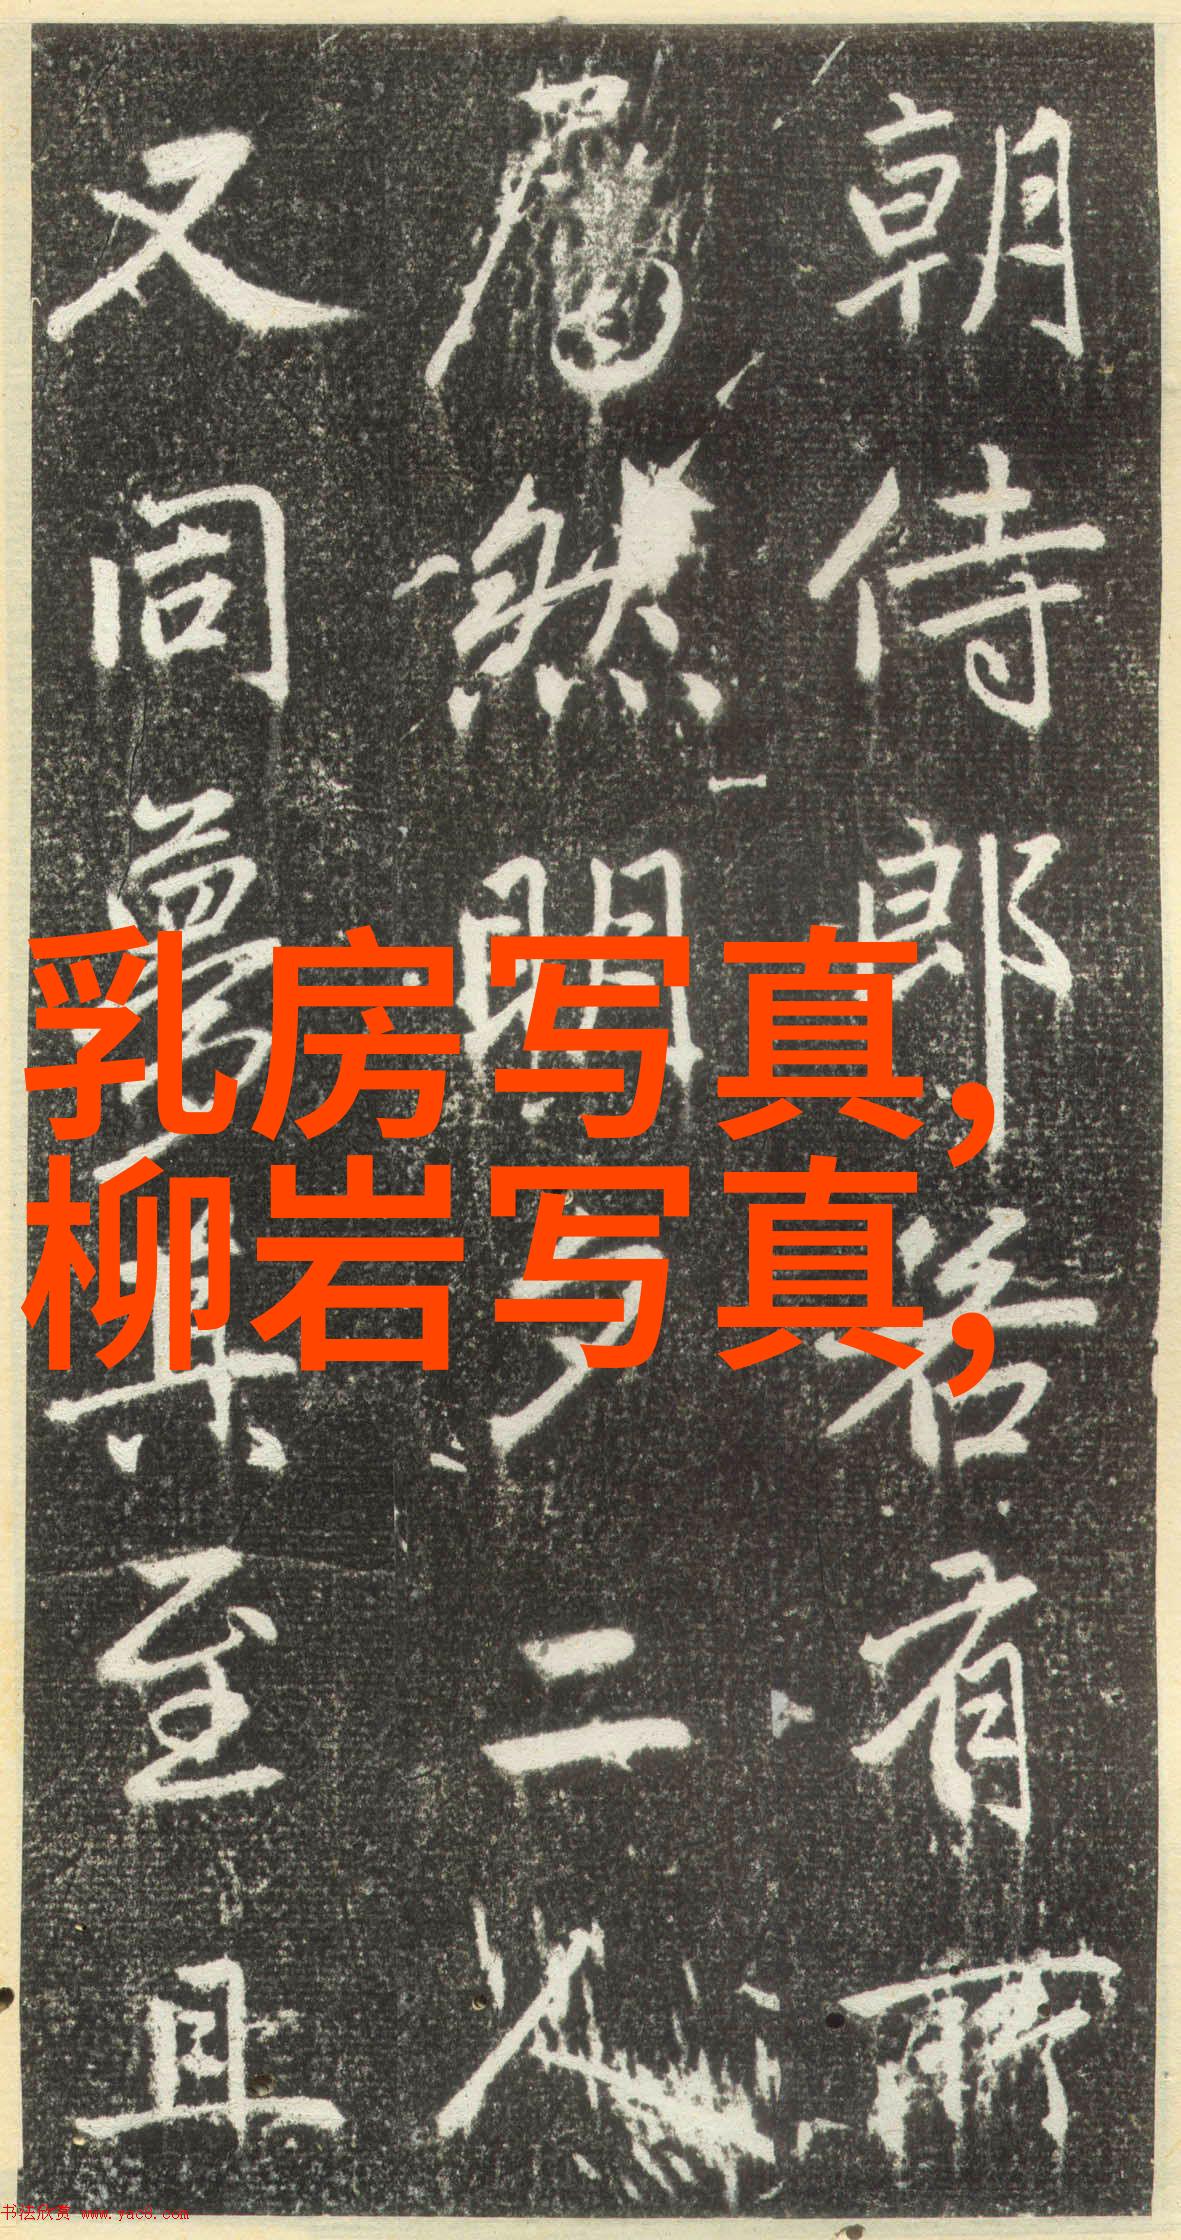 朝侍郎若有所
然明夕二人
又同夢其至且
乳房写真,
柳岩写真,
书法欣赏 www.yac8.com